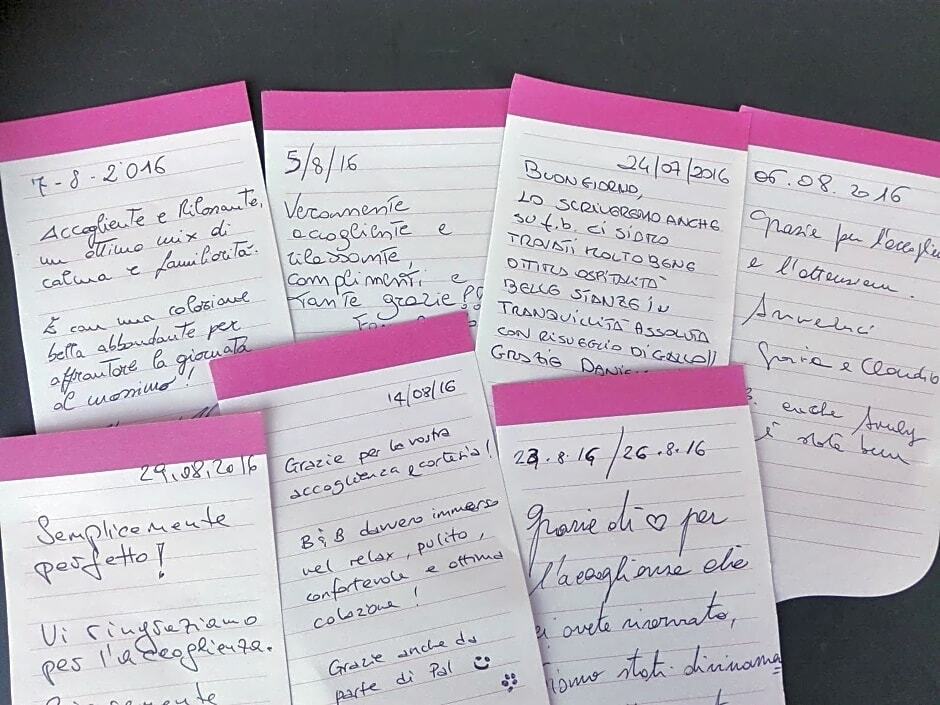 7-8-2016
Accogliente e Rilassante,
un ottimo mix di
calma e familiarità.
E con una colazione
bella abbondante per
affrontare la giornata
al massimo!
5/8/16
Veramente
accogliente e
rilassante,
complimenti e
tante grazie!!
24/07/2016
BUONGIORNO,
LO SCRIVEREMO ANCHE
SU f.b. CI SIAMO
TROVATI MOLTO BENE
OTTIMA OSPITALITÀ
BELLE STANZE IN
TRANQUILLITÀ ASSOLUTA
CON RISVEGLIO DI GALLO!!
GRAZIE
06.08.2016
Grazie per
e l'attenzione.
Grazia e Claudio
anche
è stato bene
29.08.2016
Semplicemente
perfetto!
Vi ringraziamo
per l'accoglienza.
14/08/16
Grazie per la vostra
accoglienza e cortesia!
B&B davvero immerso
nel relax, pulito,
confortevole e ottima
colazione!
Grazie anche da
parte di Pol
23.8.16/26.8.16
Grazie di ♡ per
l'accoglienza che
ci avete riservato,
siamo stati